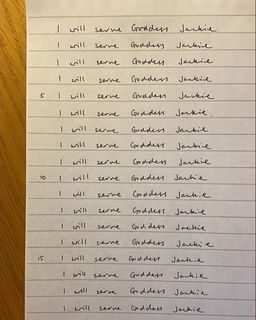 I will serve Goddess Jackie
I will serve Goddess Jackie
I will serve Goddess Jackie
I will serve Goddess Jackie
5 I will serve Goddess Jackie
I will serve Goddess Jackie.
I will serve Goddess Jackie
I will serve Goddess Jackie
I will serve Goddess Jackie
10 I will serve Goddess Jackie
I will serve Goddess Jackie
I will serve Goddess Jackie
I will serve Goddess Jackie
I will serve Goddess Jackie
15 I will serve Goddess Jackie
I will serve Goddess Jackie
I will serve Goddess Jackie
I will serve Goddess Jackie